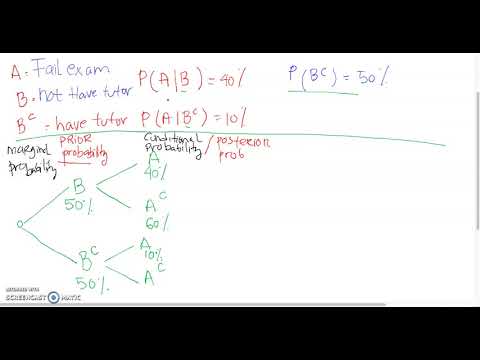 A = Fail exam
B = not Have tutor P(A|B) = 40%
B^c = have tutor P(A|B^c) = 10%
P(B^c) = 50%
marginal probability
PRIOR probability
conditional probability / posterior prob
B
50%
A
40%
A^c
60%
B^c
50%
A
10%
A^c
RECORDED WITH
SCREENCAST-O-MATIC